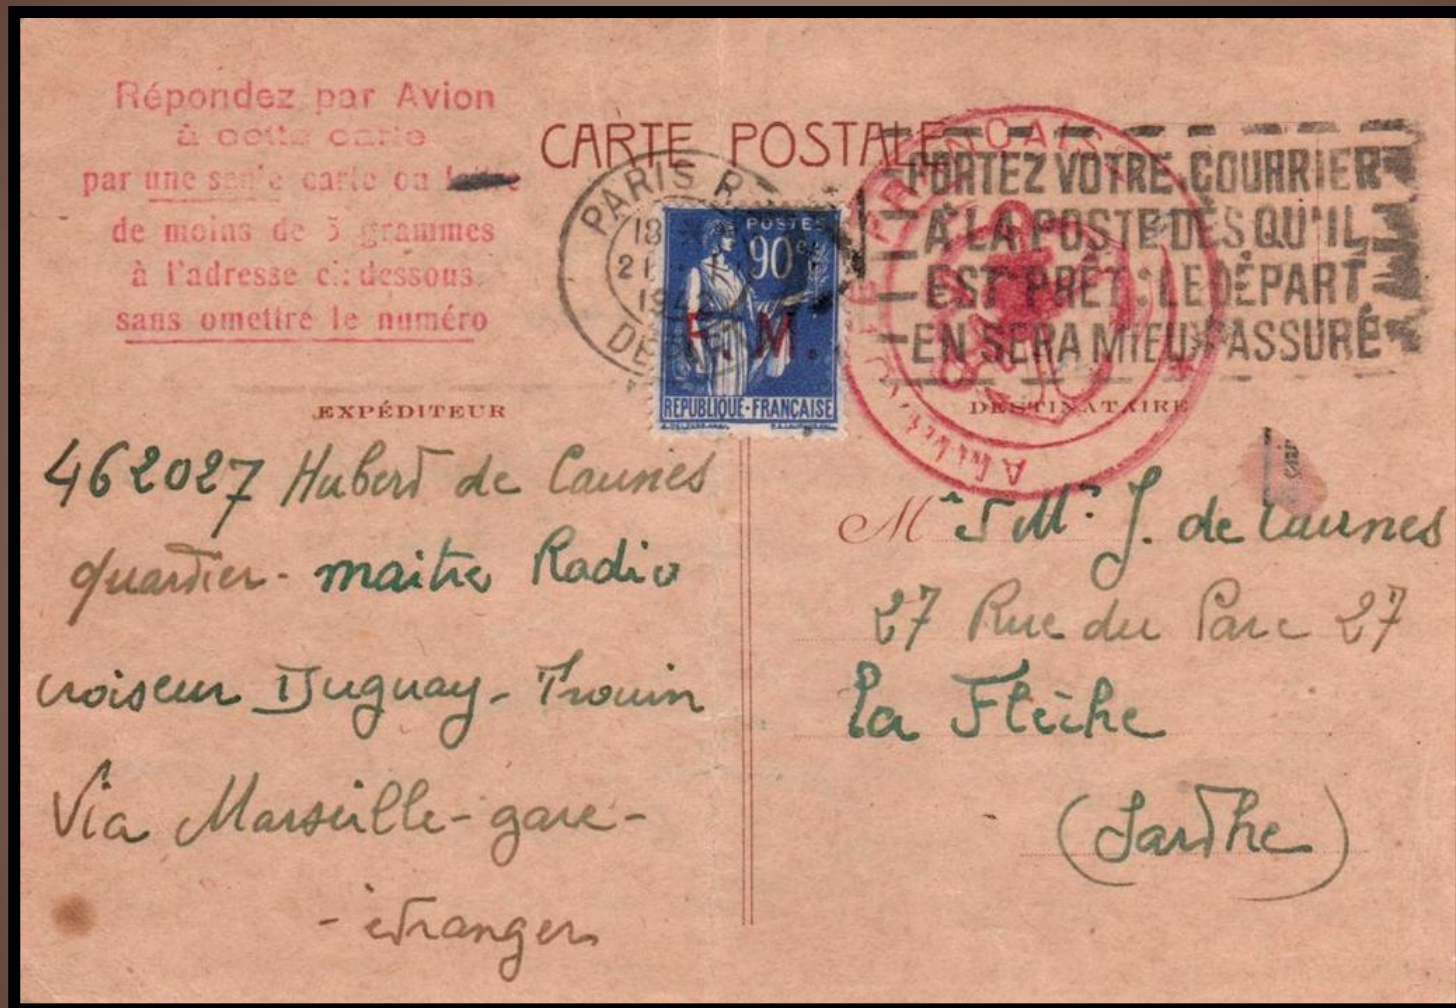 Répondez par Avion
à cette carte
par une seule carte ou
de moins de 5 grammes
à l'adresse ci-dessous
sans omettre le numéro
CARTE POSTALE
PARIS
18
21
POSTES
90c
F. M.
REPUBLIQUE-FRANÇAISE
PORTEZ VOTRE COURRIER
A LA POSTE DES QU'IL
EST PRÊT : LE DÉPART
EN SERA MIEUX ASSURÉ
FRANCAISE
EXPÉDITEUR
462027 Hubert de Caunes
quartier-maitre Radio
croiseur Duguay-Trouin
Via Marseille-gare-
-étranger
DESTINATAIRE
J. de Caunes
27 Rue du Parc 27
La Flèche
(Sarthe)